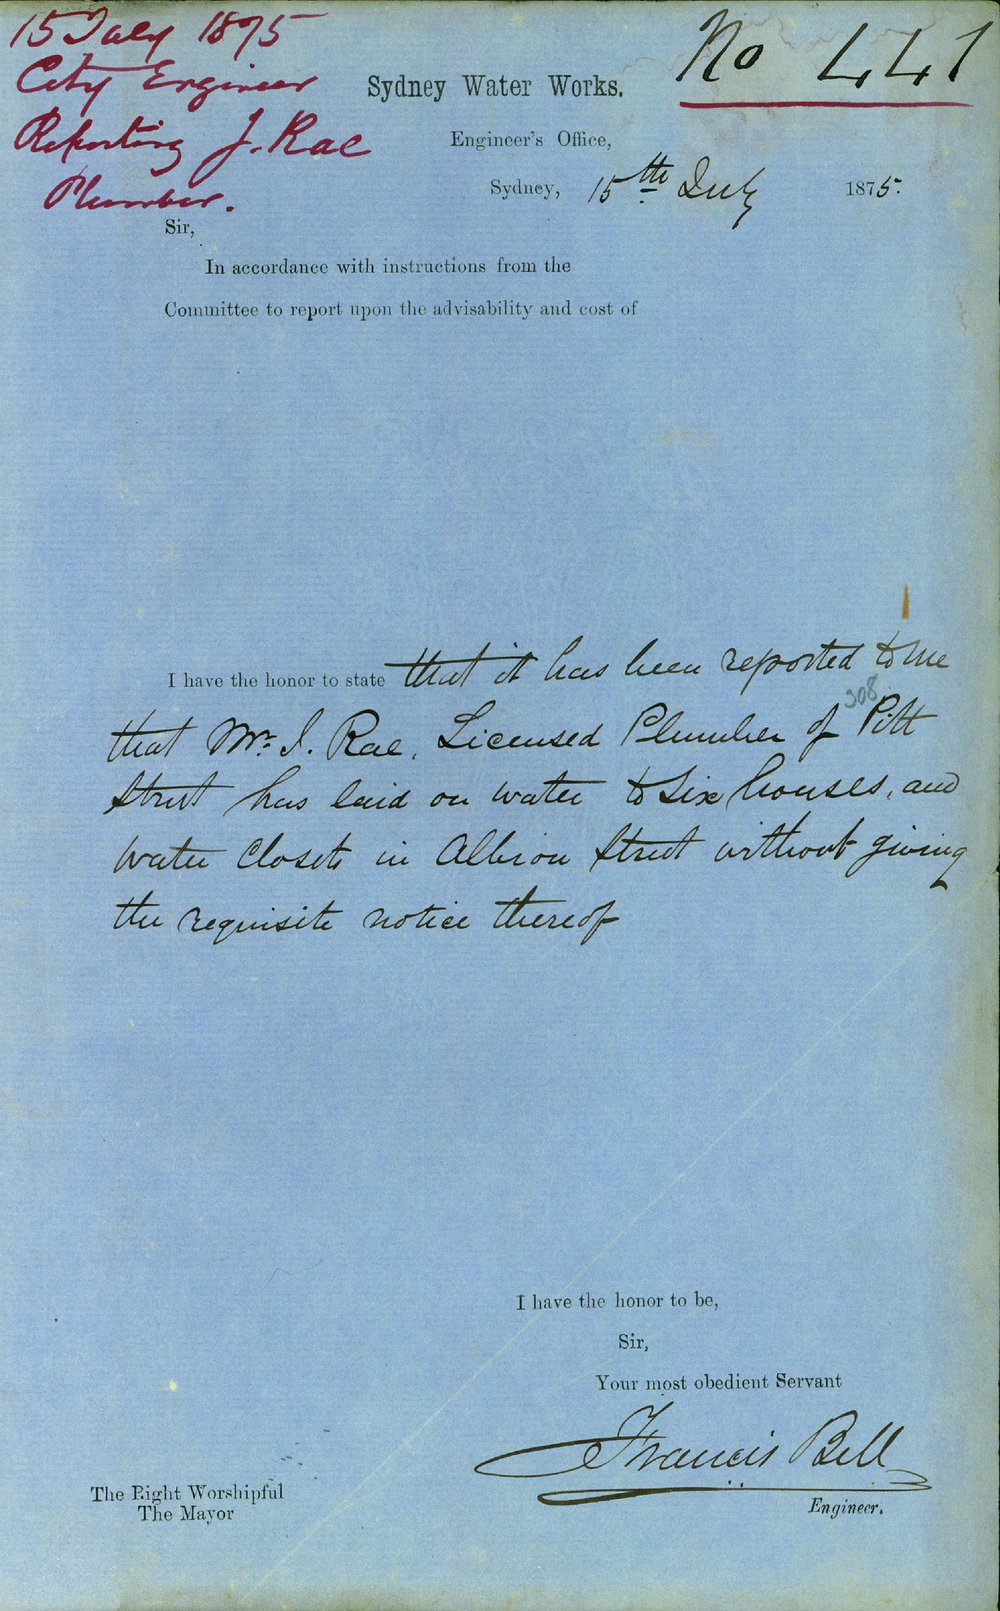 15 July 1875
City Engineer
Reporting J. Rae
Plumber.
No 441
Sydney Water Works.
Engineer's Office,
Sydney, 15th July 1875.
Sir,
In accordance with instructions from the
Committee to report upon the advisability and cost of
I have the honor to state that it has been reported to me
308
that Mr. J. Rae, Licensed Plumber of Pitt
Street has laid on water to six houses, and
water closets in Albion Street without giving
the requisite notice thereof
I have the honor to be,
Sir,
Your most obedient Servant
Francis Bell
Engineer.
The Right Worshipful
The Mayor